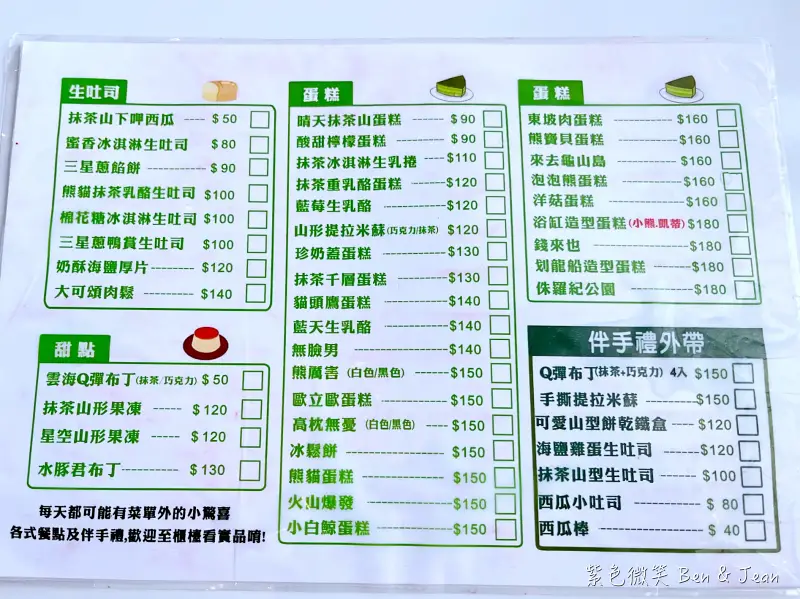 生吐司
抹茶山下呷西瓜 ----- $50
蜜香冰淇淋生吐司 $80
三星蔥餡餅 -------- $90
熊貓抹茶乳酪生吐司 $100
棉花糖冰淇淋生吐司 $100
三星蔥鴨賞生吐司 $100
奶酥海鹽厚片 --------- $120
大可頌肉鬆 --------- $140
甜點
雲海Q彈布丁(抹茶/巧克力) $50
抹茶山形果凍 ----- $120
星空山形果凍 ----- $120
水豚君布丁 ---------- $130
每天都可能有菜單外的小驚喜
各式餐點及伴手禮,歡迎至櫃檯看實品唷!
蛋糕
晴天抹茶山蛋糕 ------ $90
酸甜檸檬蛋糕 ------- $90
抹茶冰淇淋生乳捲 ---- $110
抹茶重乳酪蛋糕 ------- $120
藍莓生乳酪 ------------- $120
山形提拉米蘇(巧克力/抹茶) $120
珍奶蓋蛋糕 ------------ $130
抹茶千層蛋糕 --------- $130
貓頭鷹蛋糕 ------------ $140
藍天生乳酪 ----------- $140
無臉男 ---------------- $140
熊厲害 (白色/黑色) ------ $150
歐立歐蛋糕 ------------ $150
高枕無憂 (白色/黑色) ---- $150
冰鬆餅 ---------------- $150
熊貓蛋糕 -------------- $150
火山爆發 -------------- $150
小白鯨蛋糕 ------------ $150
蛋糕
東坡肉蛋糕 ----------- $160
熊寶貝蛋糕 ----------- $160
來去龜山島 ----------- $160
泡泡熊蛋糕 ----------- $160
洋菇蛋糕 ------------- $160
浴缸造型蛋糕(小熊.凱蒂) $180
錢來也 --------------- $180
划龍船造型蛋糕 ------- $180
侏羅紀公園 ----------- $180
伴手禮外帶
Q彈布丁(抹茶+巧克力) 4入 $150
手撕提拉米蘇 --------- $150
可愛山型餅乾鐵盒 ---- $120
海鹽雞蛋生吐司 ------- $120
抹茶山型生吐司 ------- $100
西瓜小吐司 ---------- $ 80
西瓜棒 --------------- $ 40
紫色微笑 Ben & Jean